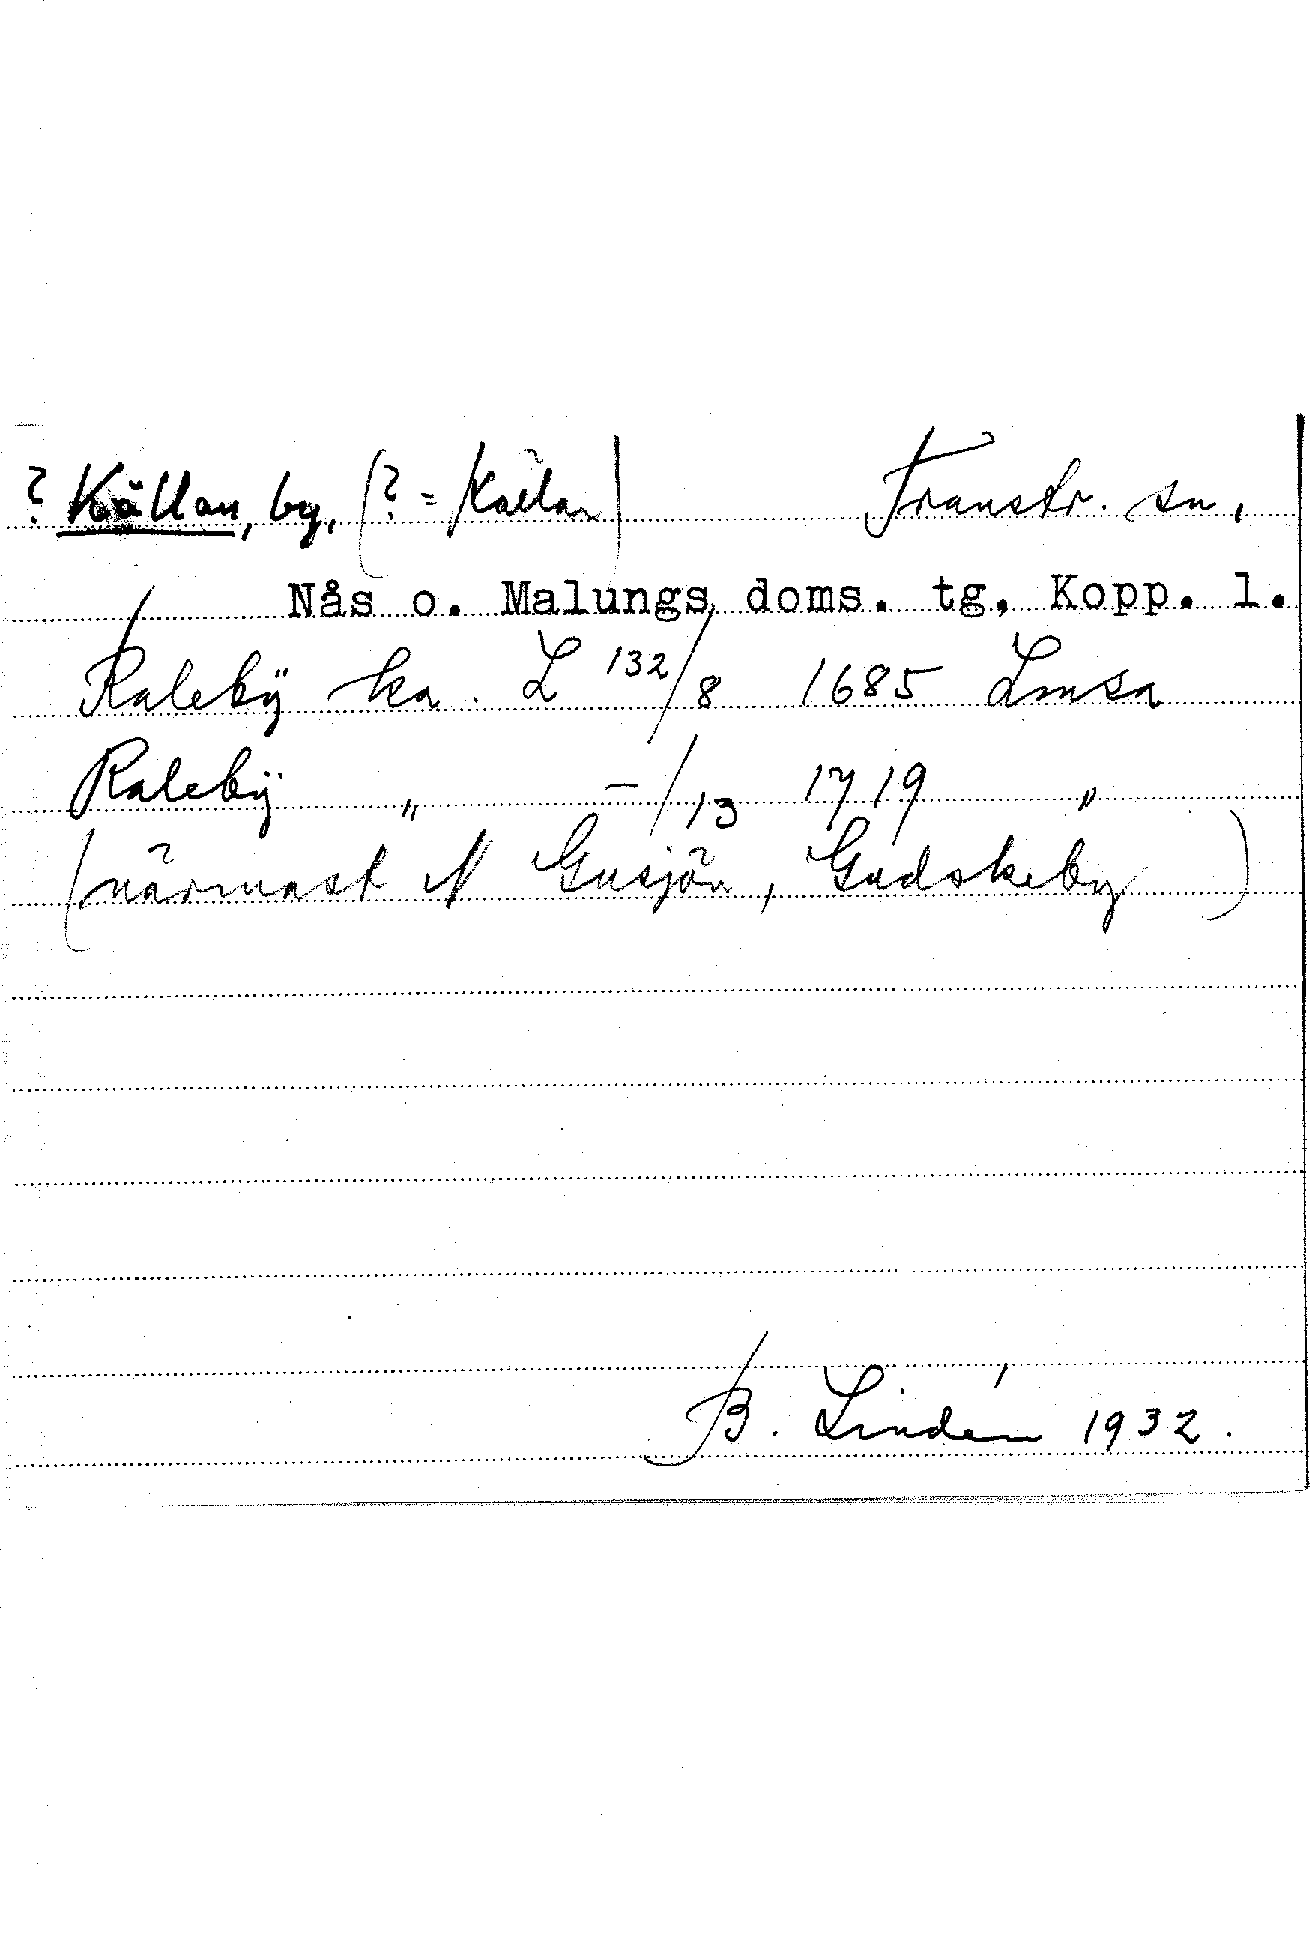 ? Källan, by, (? = Källan) Transtr. sn,
Nås o. Malungs doms. tg, Kopp. l.
Kaleby ka. L 132/8 1685 Lmsa
Kaleby „ —/13 1719 „
(närmast N Gusjön, Gudskeby )
B. Lindén 1932.